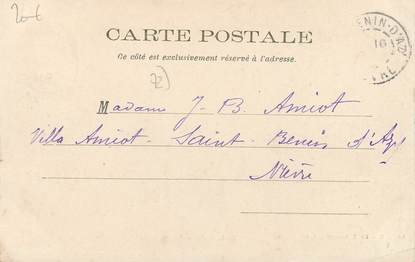 20€
CARTE POSTALE
Ce côté est exclusivement réservé à l'adresse.
Madame J-B. Amiot
Villa Amiot - Saint-Benin d'Azy
Nièvre
ENIN-D'AZ
16